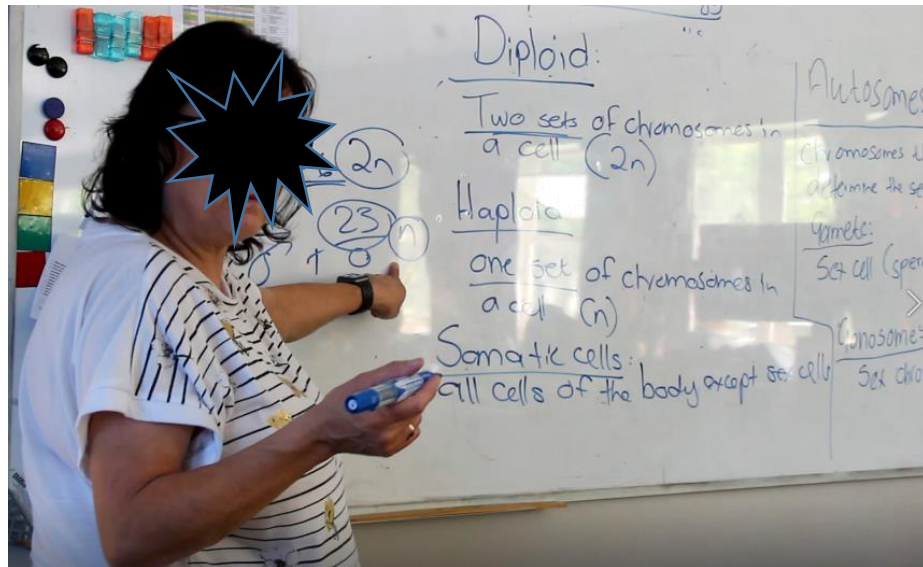 Diploid:
Two sets of chromosomes in
a cell (2n)
Haploid
one set of chromosomes in
a cell (n)
Somatic cells:
all cells of the body except sex cells
2n
23 n
♂ + ♀
Autosomes
chromosomes
determine the se
Gamets:
Sex cell (sper
Gonosome
Sex chro